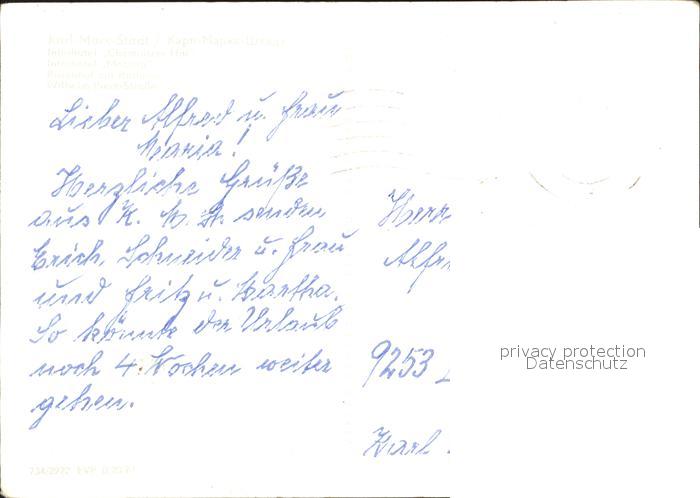 Karl-Marx-Stadt / Карл-Маркс-Штадт
Interhotel „Chemnitzer Hof“
Interhotel „Moskau“
Wilhelm-Pieck-Straße
Lieber Alfred u. Frau
Maria!
Herzliche Grüße
aus K. M. St. senden
Erich Schneider u. Frau
und Fritz u. Martha.
So könnte der Urlaub
noch 4. Wochen weiter
gehen.
Herr
Alfr
9253
Karl
privacy protection
Datenschutz